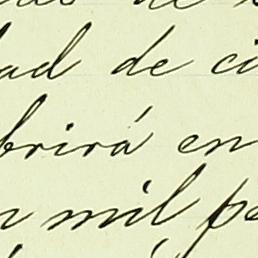 ad de ci
brirá en
mil pe